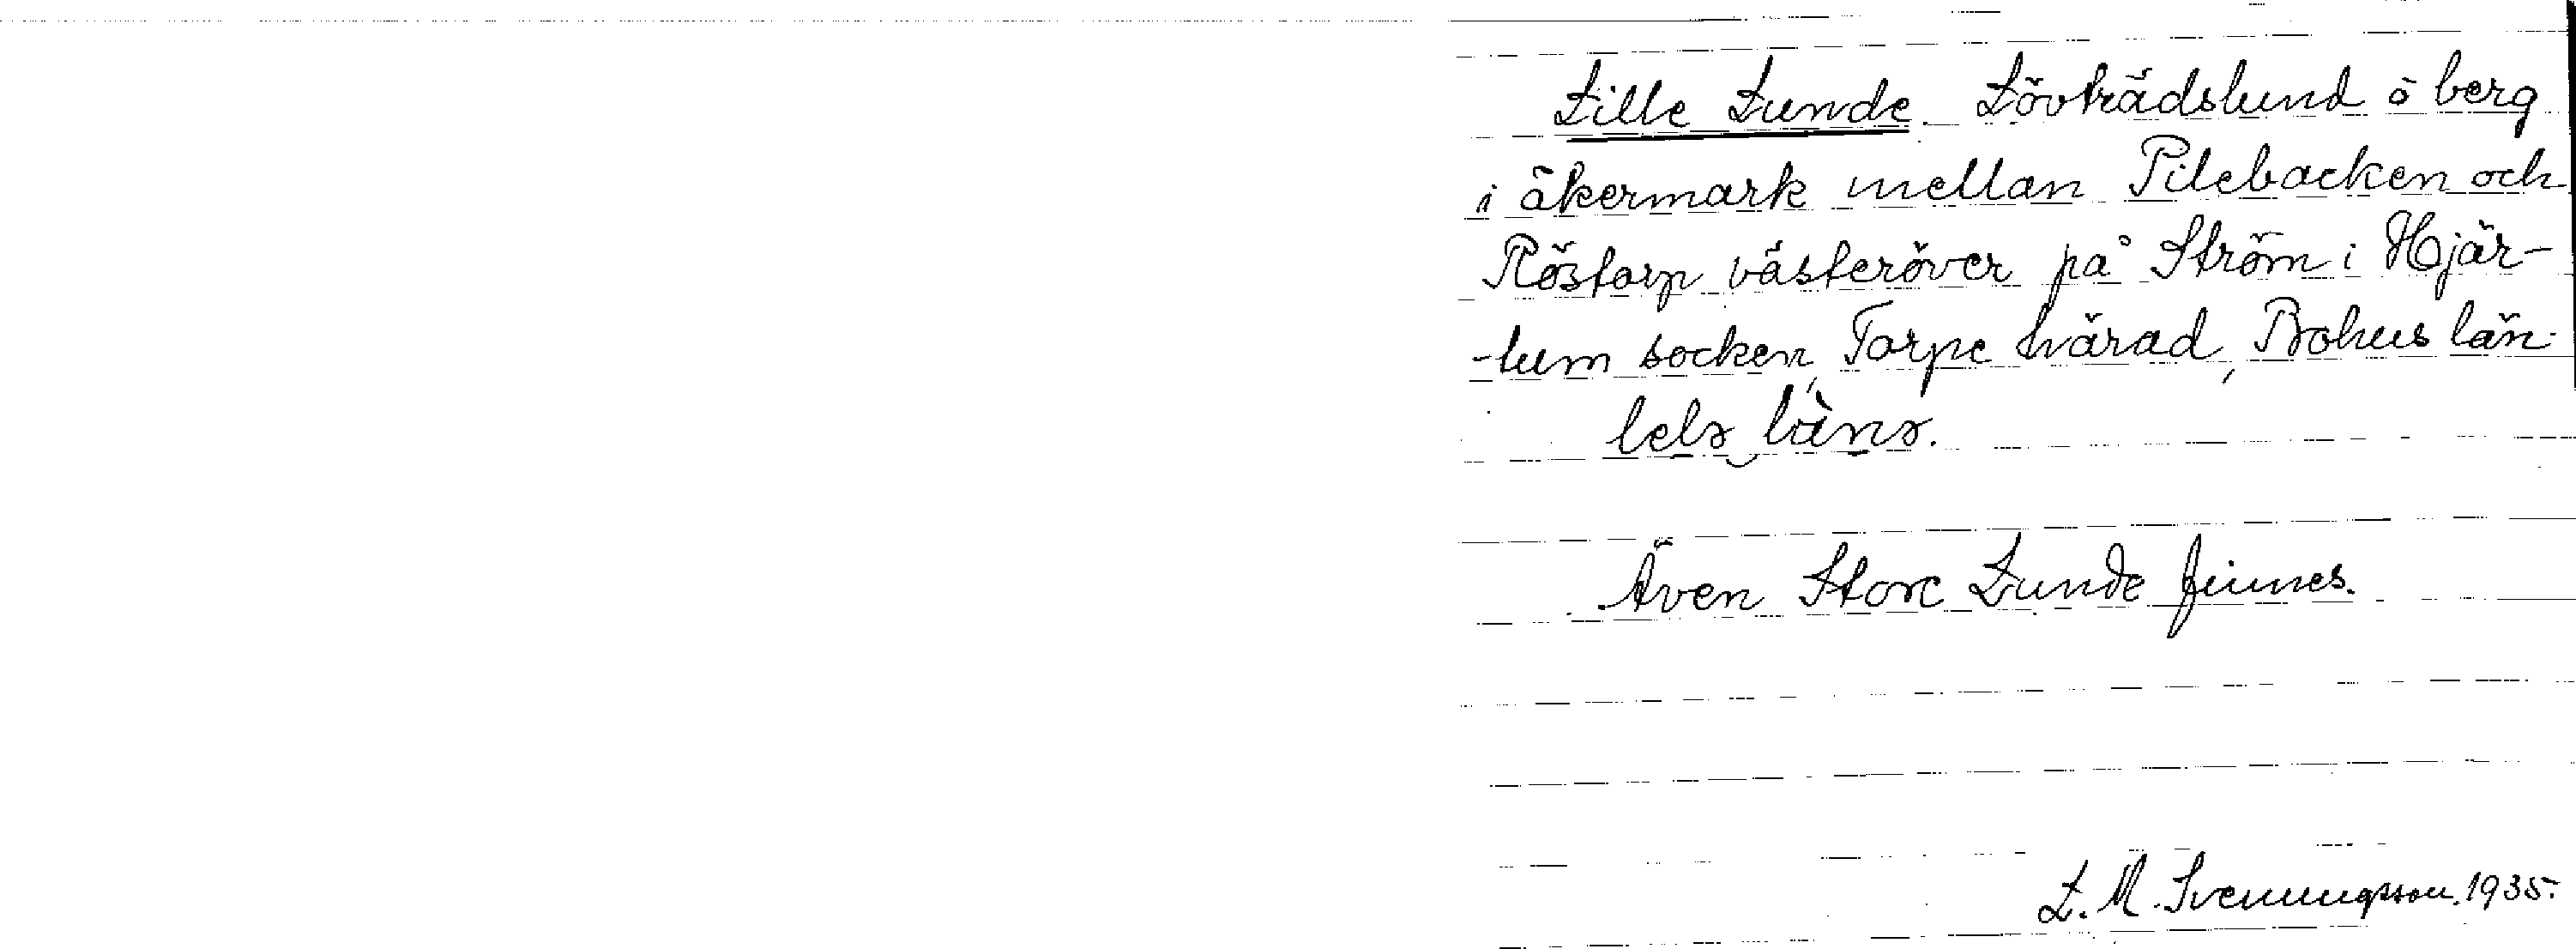 Lille Lunde. Lövträdslund å berg
i åkermark mellan Pilebacken och
Röstorp västeröver på Ström i Hjär-
-tum socken, Torpe härad, Bohus län.
Även Store Lunde finnes.
L. M. Svenungsson. 1935.